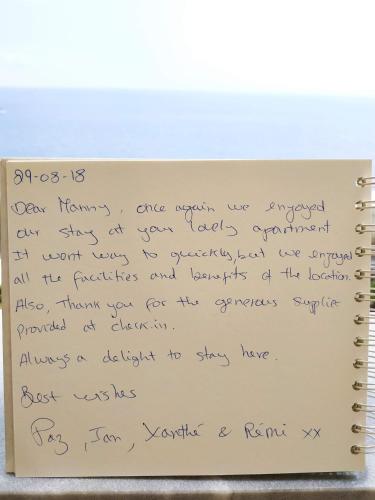 29-08-18
Dear Manny, once again we enjoyed
our stay at your lovely apartment
It went way to quickly, but we enjoyed
all the facilities and benefits of the location.
Also, Thank you for the generous supplie
provided at check.in.
Always a delight to stay here.
Best wishes
Paz, Ian, Xanthé & Rémi xx